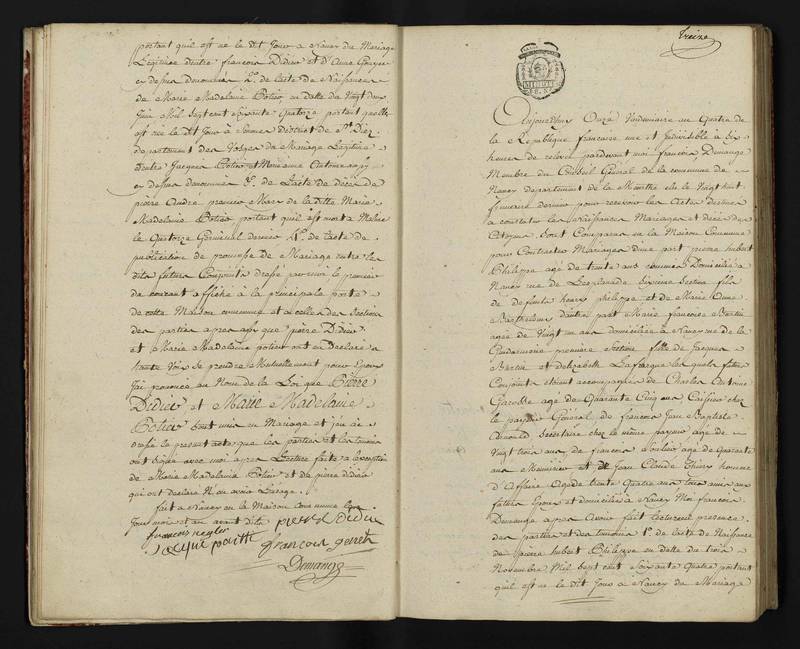 portant quil est né le dit Jour a Nancy du Mariage
Legitime dentre françois Didier et d'Anne
cy dessus denommés 2.° de lacte de Naissance
de Marie Madelaine Potier en datte du Vingt deux
Juin Mil Sept cent Soixante Quatorze portant quelle
est née le dit Jour à District de S.t Diez
departement des Vosges du Mariage Legitime
dentre Jacques Potier et Marianne
cy dessus denommés 3.° de Lacte de décès de
pierre André premier Mari de la ditte Marie
Madelaine Potier portant quil est mort a
le Quatorze Germinal dernier 4.° de lacte de
publication de promesse de Mariage entre les
dits futurs Conjoints dressé par moi le premier
du courant affiché à la principale porte
de cette Maison commune et a celles des Sections
des parties apres ap que pierre Didier
et Marie Madelaine potier ont eu declaré a
haute Voix se prendre Mutuellement pour Epoux
J'ai prononcé au Nom de la Loi que Pierre
Didier et Marie Madelaine
Potier sont unis en Mariage et j'en ai
dressé le present acte que les parties et les temoins
ont signé avec moi apres Lecture faite a lexception
de Marie Madelaine Potier et de pierre didier
qui ont declaré N'en avoir Lusage.
fait a Nancy en la Maison commune Les
Jour mois et an avant dits pierre Didier
françois
Jacque françois
Demange
treize
Aujourdhuy Onze Vendemiaire an Quatre de
la Republique francaise une et Indivisible à Six
heures de relevée pardevant moi françois Demange
Membre du Conseil Général de la commune de
Nancy departement de la Meurthe elu le Vingt huit
frimaire dernier pour recevoir les Actes destinés
a constater les Naissances Mariages et décès des
Citoyens Sont Comparus en la Maison Commune
pour Contracter Mariage dune part pierre hubert
Philippe agé de trente ans Domicilié a
Nancy rue de Lesplanade Sixieme Section fils
de defunts henry philippe et de Marie Anne
Barthelemy dautre part Marie francoise Bertin
agée de Vingt un ans domiciliée a Nancy rue de la
Gendarmerie premiere Section fille de Jacques
Bertin et delizabette Lafarque les quels futurs
Conjoints etoient accompagnés de Charles Antoine
agé de Quarante Cinq ans Caissier chez
le payeur Général de francois Jean Baptiste
Secretaire chez le même payeur agé de
Vingt trois ans de francois agé de Quarante
ans et de Jean Claude Thiery homme
d'Affaire Agé de trente Quatre ans tous amis aux
futurs Epoux et domiciliés a Nancy Moi francois
Demange apres Avoir fait lecture en presence
des parties et des temoins 1.° de lacte de Naissance
de pierre hubert Philippe en datte du trois
Novembre Mil Sept cent Soixante Quatre portant
quil est né le dit Jour a Nancy du Mariage